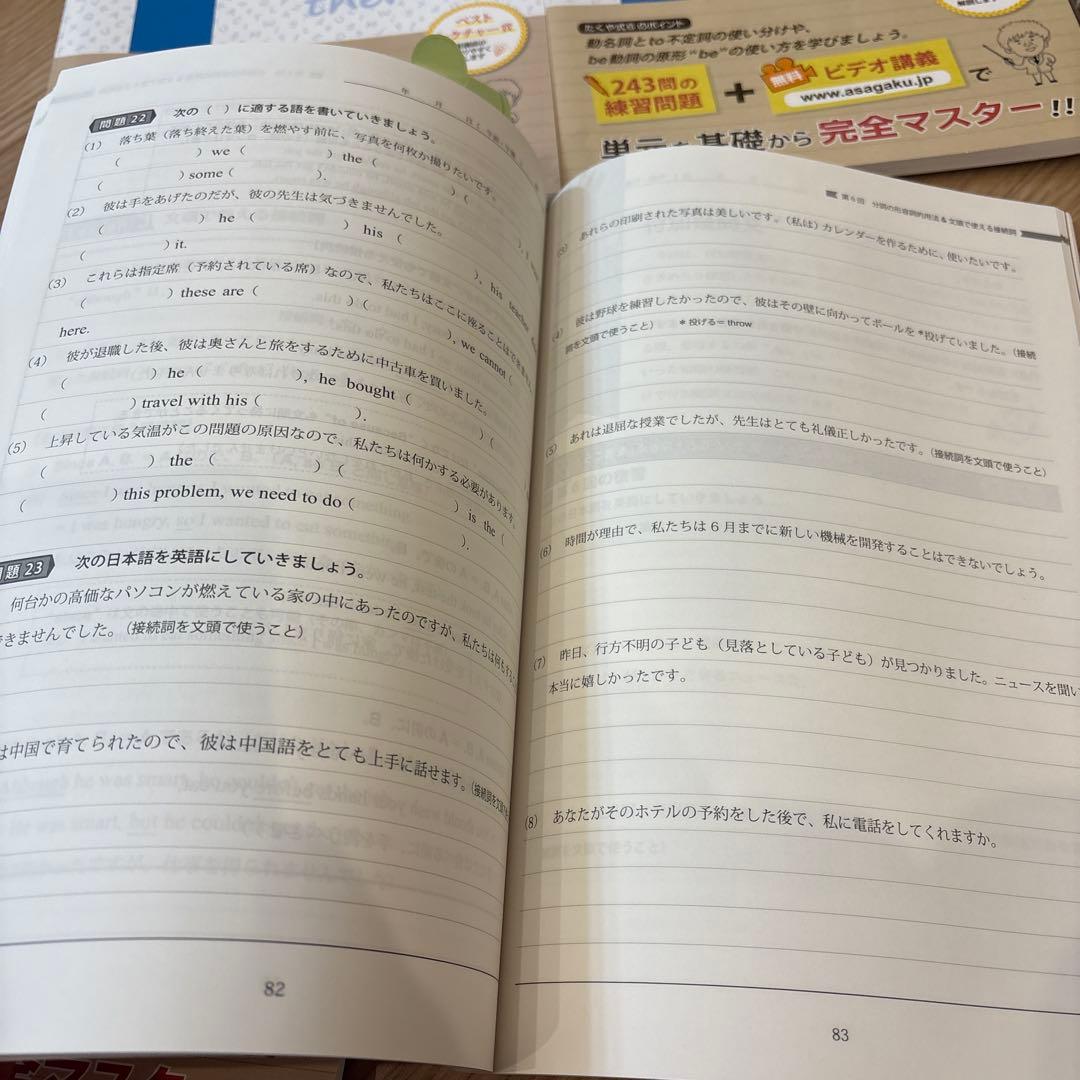 the
ベスト
クチャー式
たくや式®のポイント
動名詞とto不定詞の使い分けや、
be動詞の原形"be"の使い方を学びましょう。
243問の
練習問題
+
無料
ビデオ講義
www.asagaku.jp
で
単元を基礎から完全マスター!!
年 月
問題22 次の( )に適する語を書いていきましょう。
(1) 落ち葉(落ち終えた葉)を燃やす前に、写真を何枚か撮りたいです。
( ) we ( ) the ( ) (
( ) some ( ).
(2) 彼は手をあげたのだが、彼の先生は気づきませんでした。
( ) he ( ) his ( ), his teacher
( ) it.
(3) これらは指定席(予約されている席)なので、私たちはここに座ることはできません
( ) these are ( ) ( ), we cannot (
here.
(4) 彼が退職した後、彼は奥さんと旅をするために中古車を買いました。
( ) he ( ), he bought ( ) (
( ) travel with his ( ).
(5) 上昇している気温がこの問題の原因なので、私たちは何かする必要があります。
( ) the ( ) ( ) is the (
( ) this problem, we need to do ( ).
題23 次の日本語を英語にしていきましょう。
何台かの高価なパソコンが燃えている家の中にあったのですが、私たちは何も
できませんでした。(接続詞を文頭で使うこと)
は中国で育てられたので、彼は中国語をとても上手に話せます。(接続詞を文頭
82
第6回 分詞の形容詞的用法&文頭で使える接続詞
(3) あれらの印刷された写真は美しいです。(私は)カレンダーを作るために、使いたいです。
(4) 彼は野球を練習したかったので、彼はその壁に向かってボールを*投げていました。(接続
詞を文頭で使うこと) *投げる=throw
(5) あれは退屈な授業でしたが、先生はとても礼儀正しかったです。(接続詞を文頭で使うこと)
(6) 時間が理由で、私たちは6月までに新しい機械を開発することはできないでしょう。
(7) 昨日、行方不明の子ども(見落としている子ども)が見つかりました。ニュースを聞い
本当に嬉しかったです。
(8) あなたがそのホテルの予約をした後で、私に電話をしてくれますか。
83